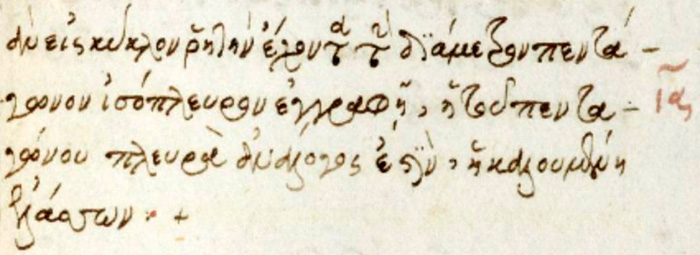 ἐὰν εἰς κύκλον ῥητὴν ἔχοντα τὴν διάμετρον πεντά-
γωνον ἰσόπλευρον ἐγγραφῆ, ἡ τοῦ πεντα- ια
γώνου πλευρὰ ἄλογός ἐστϊν, ἡ καλουμένη
ἐλάσσων :+